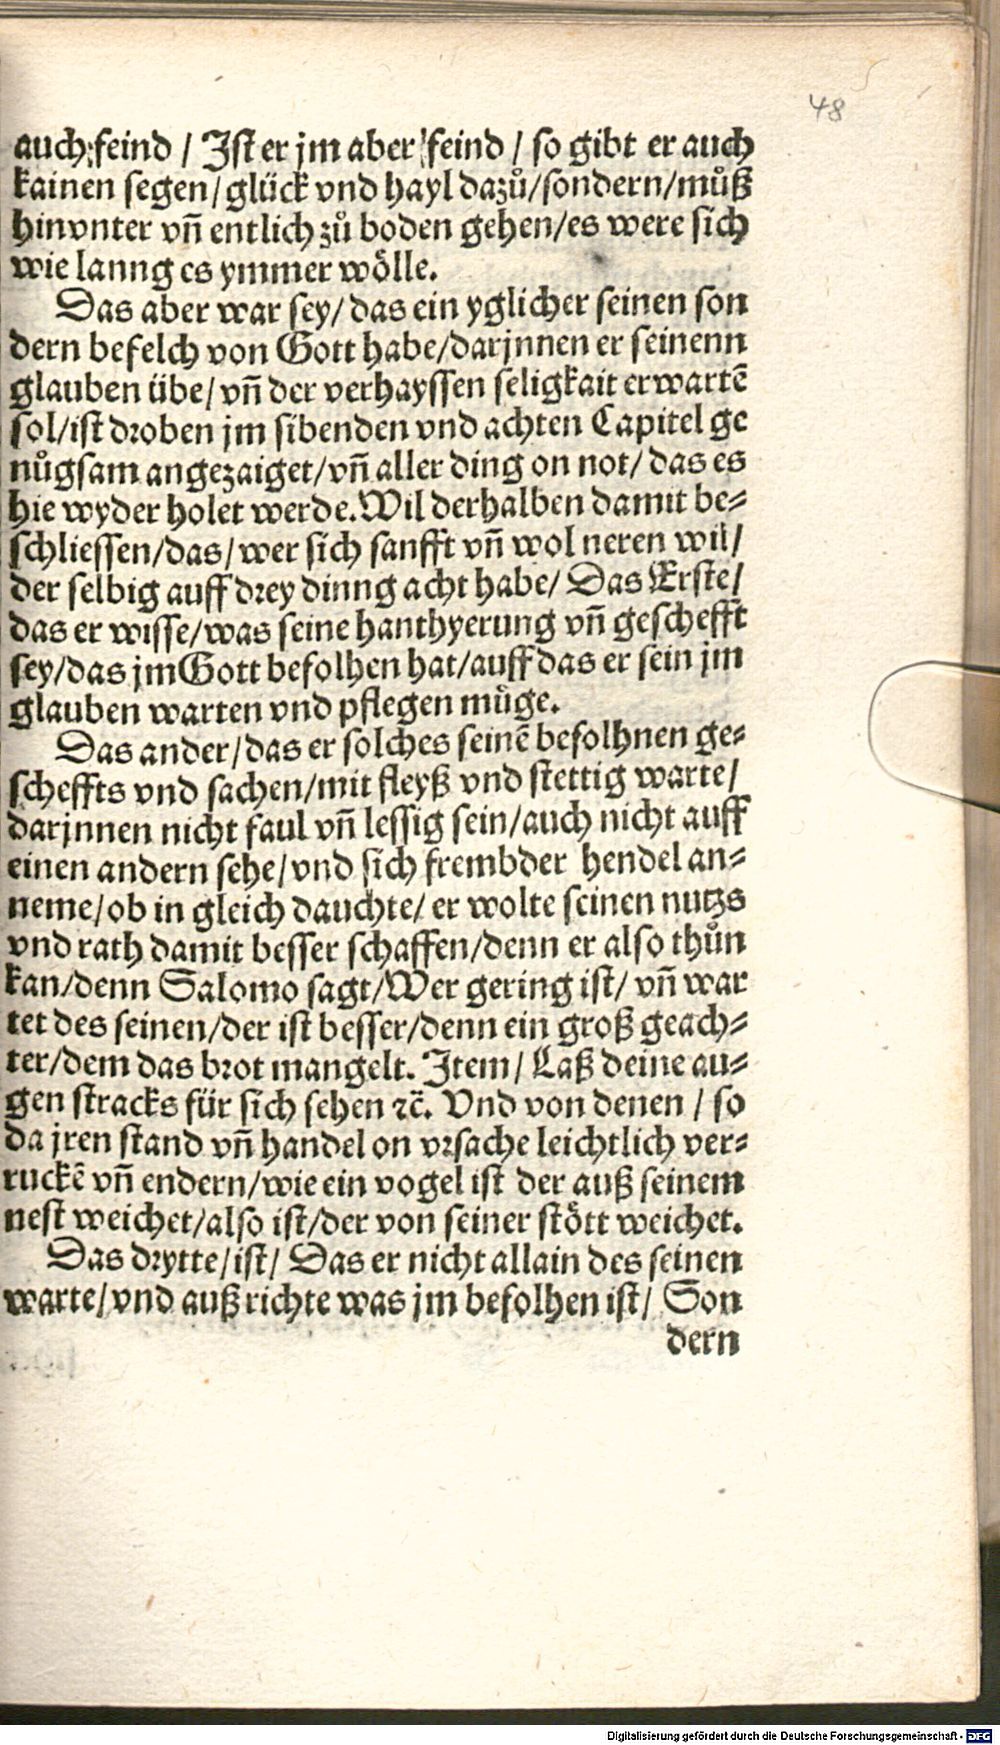 48
auch feind / Jst er jm aber feind / so gibt er auch
kainen segen/glück vnd hayl dazů/sondern/můß
hinvnter vn̄ entlich zů boden gehen/es were sich
wie lanng es ymmer wölle.
Das aber war sey/das ein yglicher seinen son
dern befelch von Gott habe/darjnnen er seinenn
glauben übe/vn̄ der verhayssen seligkait erwartē
sol/ist droben jm sibenden vnd achten Capitel ge
nůgsam angezaiget/vn̄ aller ding on not/das es
hie wyder holet werde.Wil derhalben damit be⸗
schliessen/das/wer sich sanfft vn̄ wol neren wil/
der selbig auff drey dinng acht habe/ Das Erste/
das er wisse/was seine hanthyerung vn̄ geschefft
sey/das jm Gott befolhen hat/auff das er sein jm
glauben warten vnd pflegen müge.
Das ander/das er solches seinē befolhnen ge⸗
scheffts vnd sachen/mit fleyß vnd stettig warte/
darjnnen nicht faul vn̄ lessig sein/auch nicht auff
einen andern sehe/vnd sich frembder hendel an⸗
neme/ob in gleich dauchte/er wolte seinen nutzs
vnd rath damit besser schaffen/denn er also thůn
kan/denn Salomo sagt/Wer gering ist/vn̄ war
tet des seinen/der ist besser/denn ein groß geach⸗
ter/dem das brot mangelt. Jtem/ Laß deine au⸗
gen stracks für sich sehen ⁊c̄. Vnd von denen / so
da jren stand vn̄ handel on vrsache leichtlich ver⸗
ruckē vn̄ endern/wie ein vogel ist der auß seinem
nest weichet/also ist/der von seiner stött weichet.
Das drytte/ist/ Das er nicht allain des seinen
warte/vnd auß richte was jm befolhen ist/ Son
dern
Digitalisierung gefördert durch die Deutsche Forschungsgemeinschaft - DFG